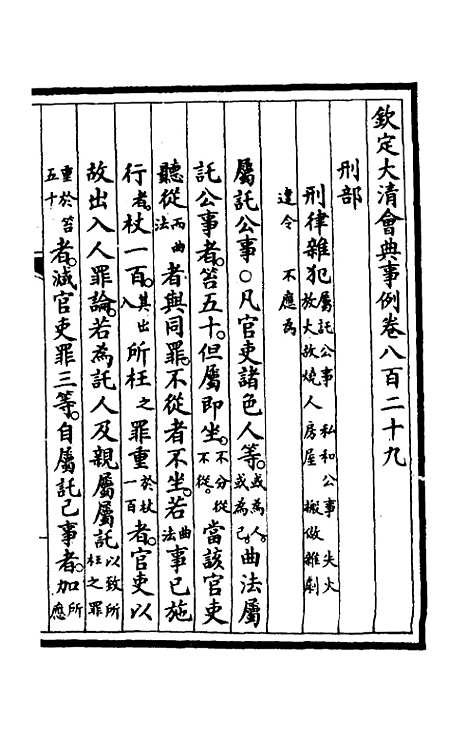 欽定大清會典事例卷八百二十九
刑部
刑律雜犯 屬託公事 私和公事 失火
放火故燒人房屋 搬做雜劇
違令 不應為
屬託公事○凡官吏諸色人等。或為人。或為己。曲法屬
託公事者。笞五十。但屬即坐。不分從不從。當該官吏
聽從而曲法者與同罪。不從者不坐。若曲法事已施
行者。杖一百。其出入所枉之罪重於杖一百者。官吏以
故出入人罪論。若為託人及親屬屬託以致所枉之罪
重於笞五十者。減官吏罪三等。自屬託己事者。加所應